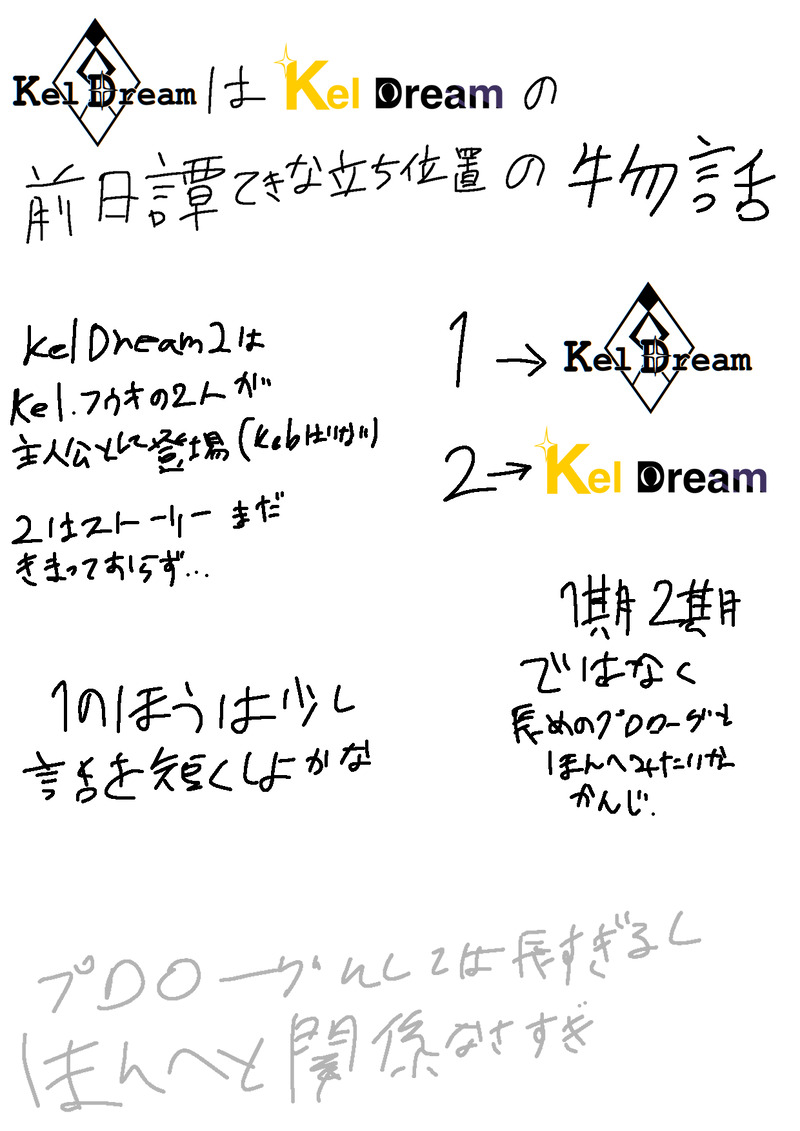 Kel Dream は Kel Dream の
前日譚てきな立ち位置の物語
Kel Dream 2は
Kel.フウキの2人が
主人公として登場(Kebはいない)
2はストーリーまだ
きまっておらず...
1のほうは少し
話を短くしよかな
1→Kel Dream
2→Kel Dream
1期2期
ではなく
長めのプロローグと
ほんへみたいな
かんじ.
プロローグんしては長すぎるし
ほんへと関係なさすぎ